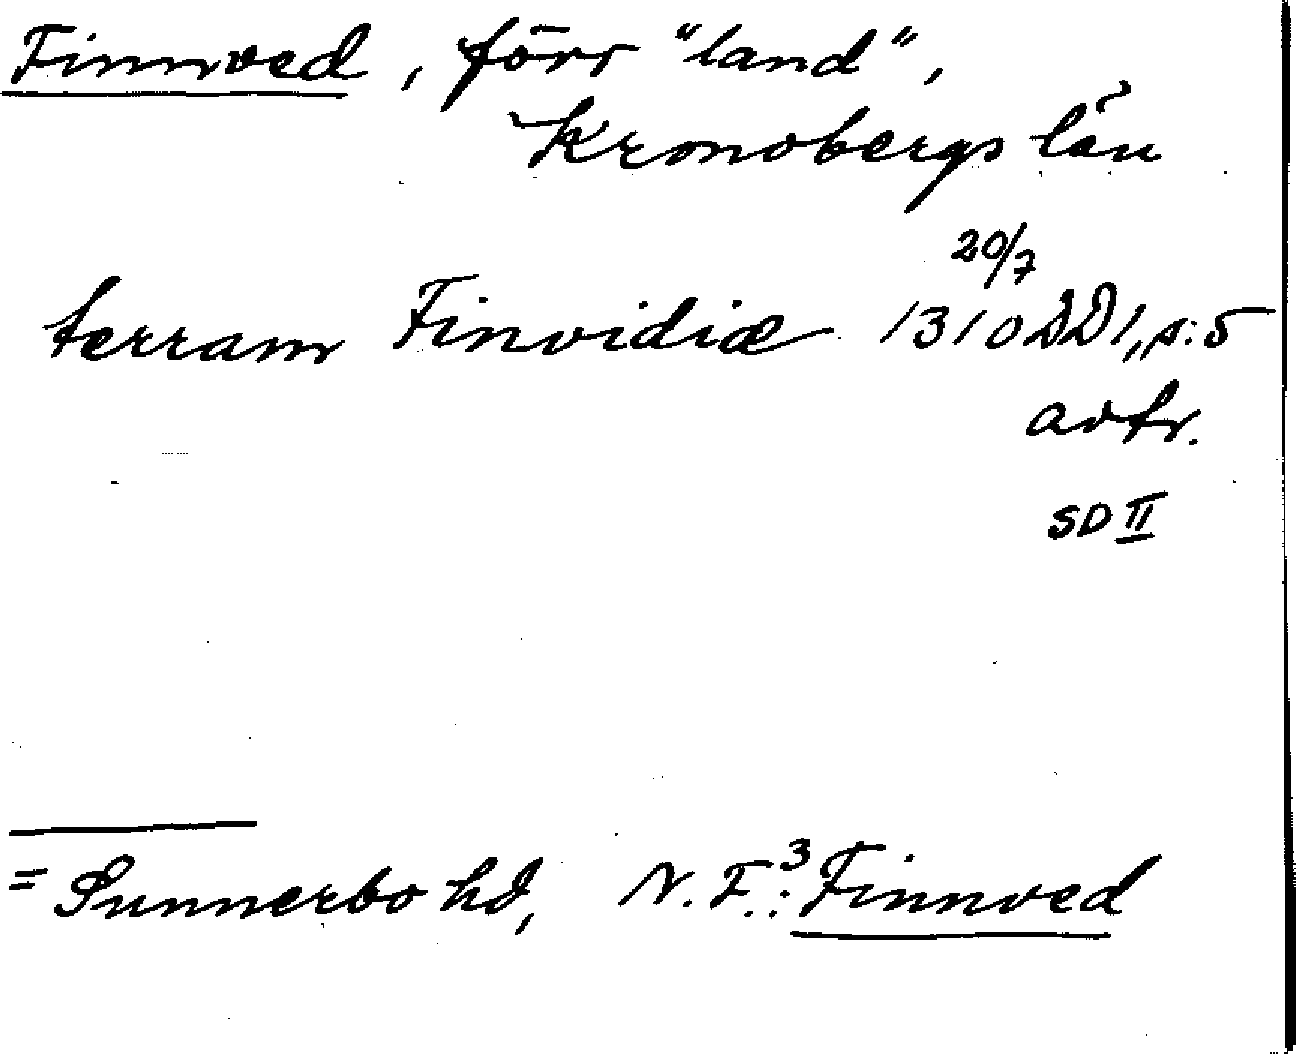 Finnved, förr "land",
Kronobergs län
terram Finvidiæ 20/7 1310 DD1,, s: 5
avtr.
SD II
= Sunnerbo hd, N. F.³: Finnved